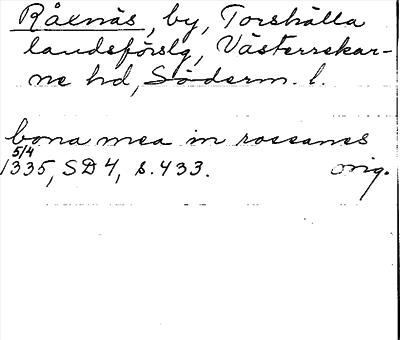 Råxnäs, by, Torshälla
landsförslg, Västerrekar-
ne hd, Söderm. l.
bona mea in roxanes
5/4
1335, SD 4, s. 433. orig.